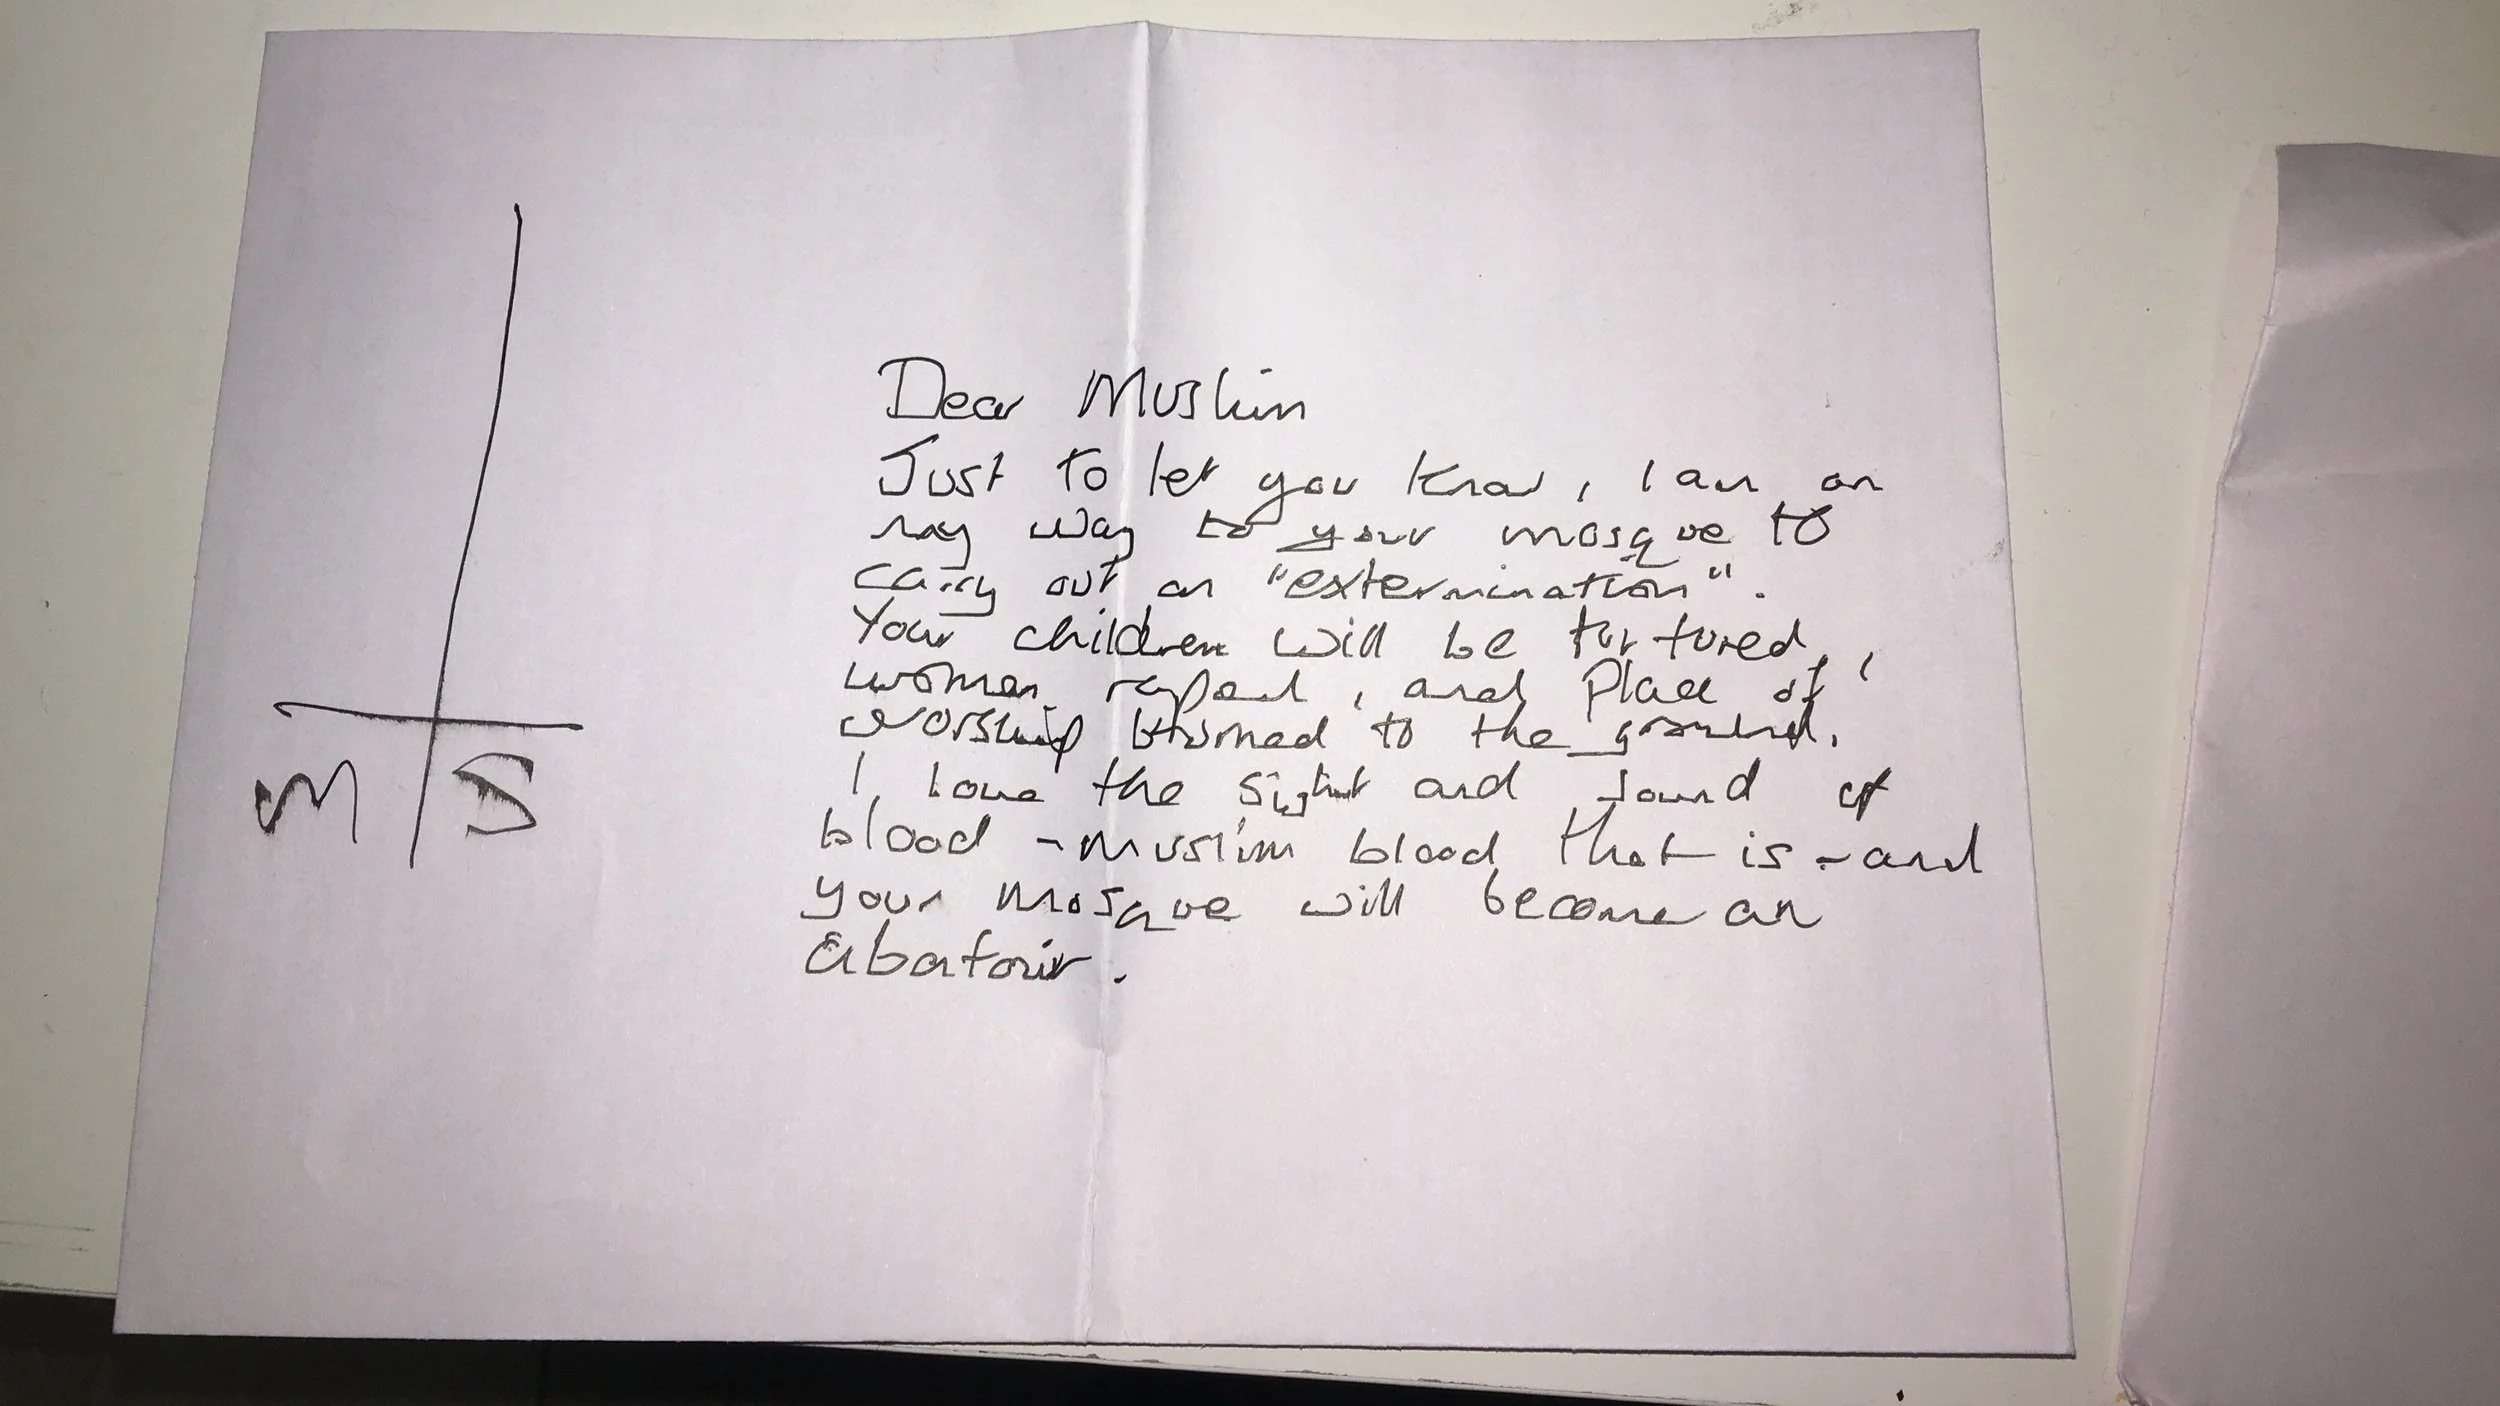 M S
Dear Muslim
Just to let you know, I am on
my way to your mosque to
carry out an "extermination".
Your children will be tortured,
women raped, and place of
worship burned to the ground.
I love the sight and sound of
blood - muslim blood that is - and
your mosque will become an
abatoir.